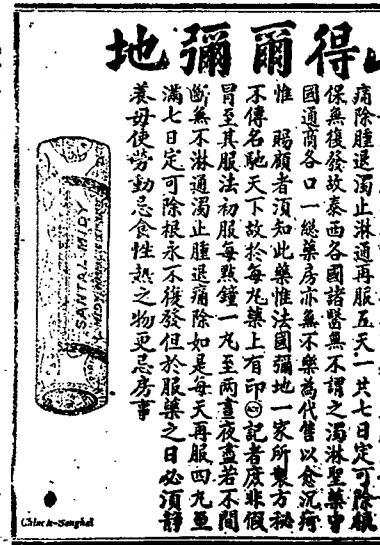 山得爾彌地
痛除腫退濁止淋通再服五天一共七日定可除根
保無復發故泰西各國諸醫無不謂之濁淋聖藥中
國通商各口一總藥房亦無不樂為代售以愈沉疴
惟 賜顧者須知此藥惟法國彌地一家所製方秘
不傳名馳天下故於每丸藥上有印MIDY記者庶非假
冒至其服法初服每點鐘一丸至兩晝夜盡若不間
斷無不淋通濁止腫退痛除如是每天再服四丸至
滿七日定可除根永不復發但於服藥之日必須靜
養毋使勞動忌食性熱之物更忌房事
SANTAL MIDY